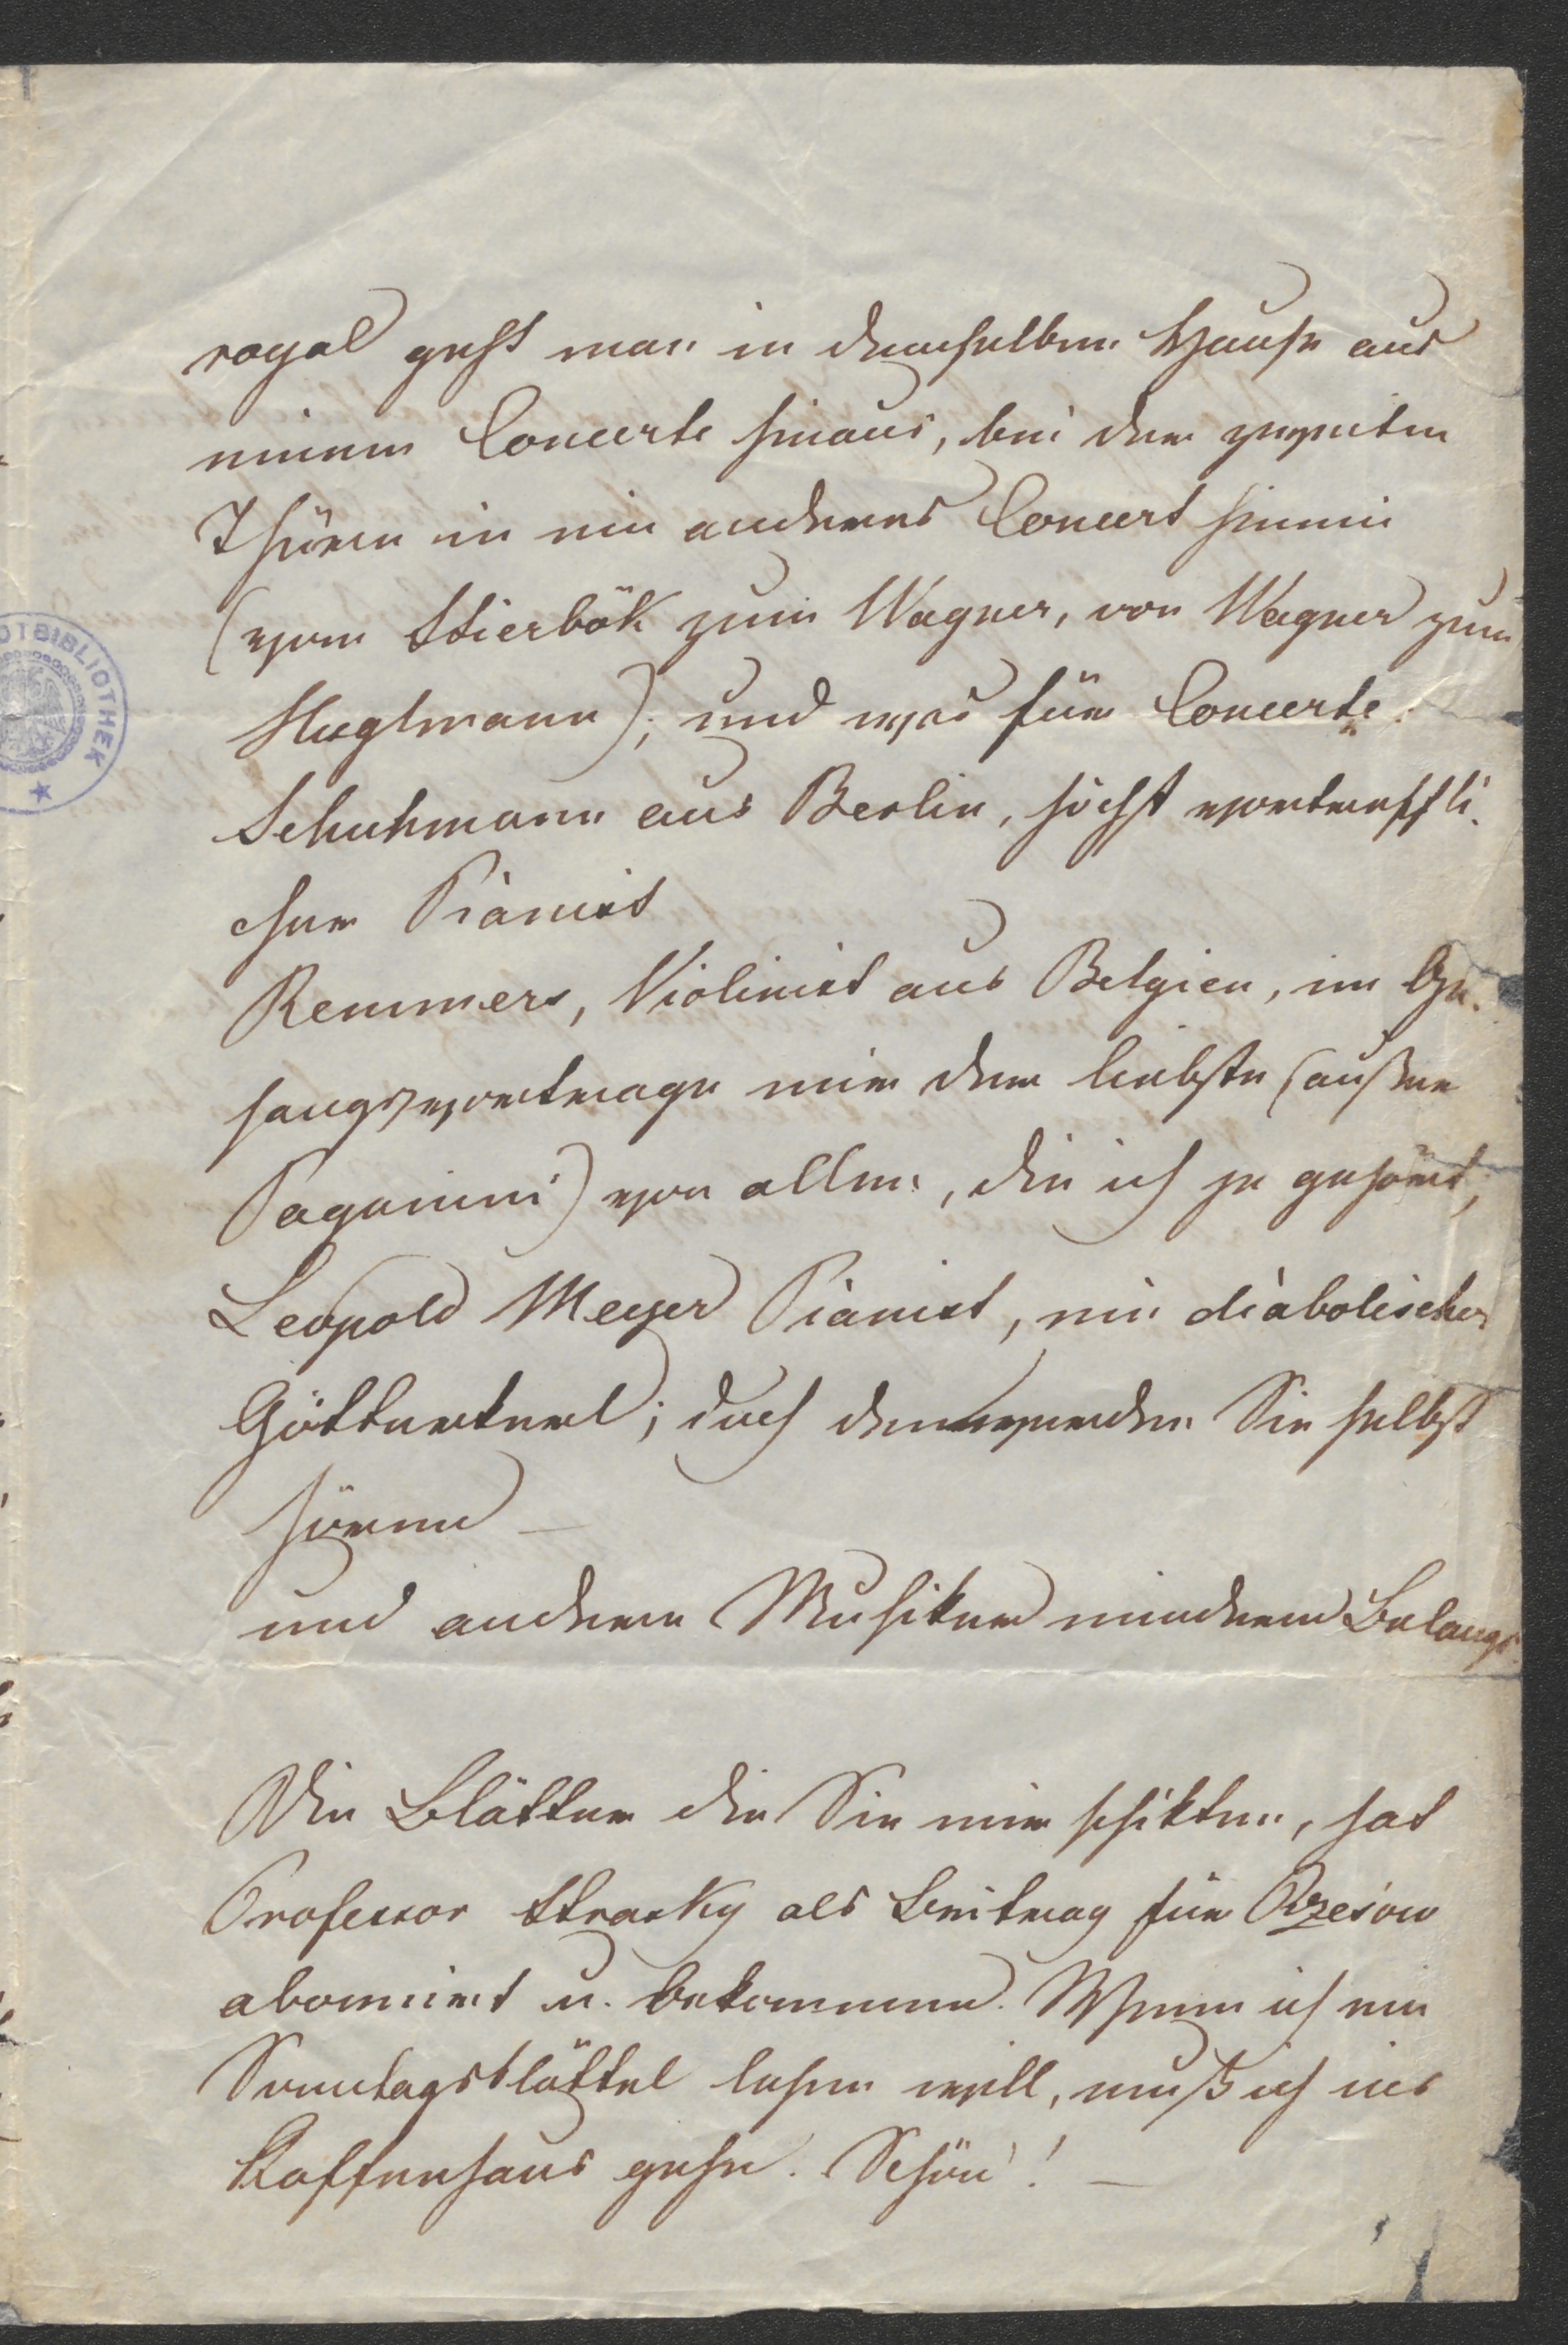 royal geht man in demselben Hause aus
einem Concerte hinaus, bei der zweiten
Thüre in ein anderes Concert hinein
(vom Stierbök zum Wagner, von Wagner zum
Huglmann); und was für Concerte.
Schuhmann aus Berlin, höchst vortreffli-
cher Pianist
Remmers, Violinist aus Belgien, im Ge-
sangsvortrage mir der liebste (außer
Paganini) von allen, die ich je gehört,
Leopold Meyer Pianist, ein diabolischer
Götterkerl; doch den werden Sie selbst
hören —
und andere Musiker mindern Belangs.
Die Blätter die Sie mir schikten, hat
Professor Strasky als Beitrag für Rzesów
abonnirt u. bekommen. Wenn ich ein
Sonntagsblättel lesen will, muß ich ins
Kaffeehaus gehn. Schön! —
OTBIBLIOTHEK